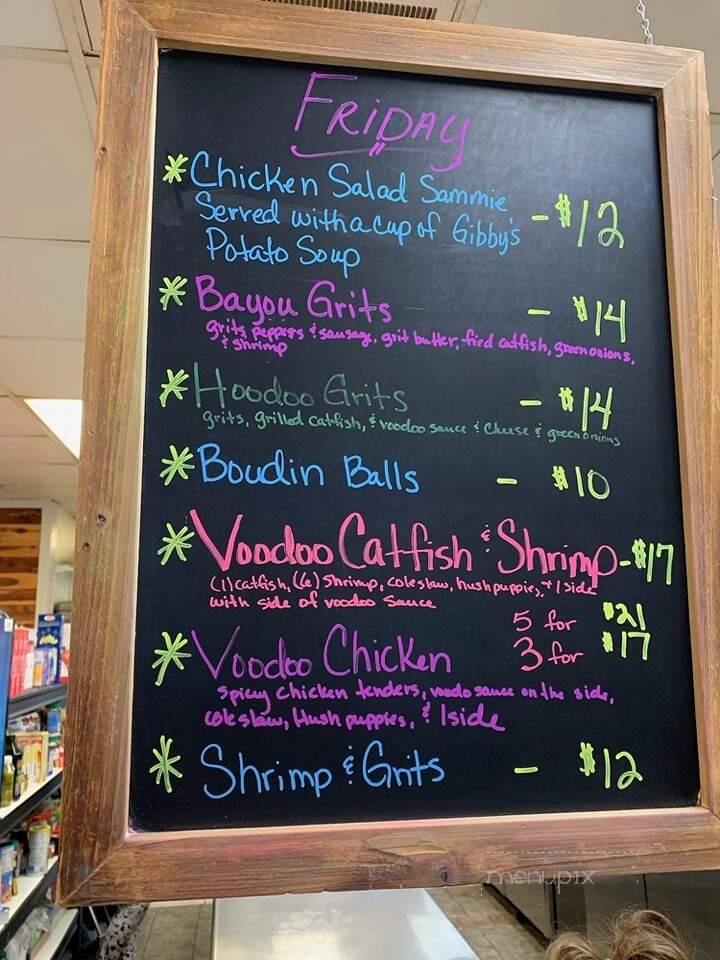 Friday
* Chicken Salad Sammie
Served with a cup of Gibby's - $12
Potato Soup
* Bayou Grits - $14
grits, peppers & sausage, grit butter, fied catfish, green onions,
& shrimp
* Hoodoo Grits - $14
grits, grilled catfish, & voodoo sauce & cheese & green onions
* Boudin Balls - $10
* Voodoo Catfish & Shrimp - $17
(1) catfish, (6) shrimp, coleslaw, hushpuppies, + 1 side
with side of voodoo sauce
5 for $21
* Voodoo Chicken 3 for $17
spicy chicken tenders, voodo sauce on the side,
coleslaw, Hush puppies, & 1 side
* Shrimp & Grits - $12
menupix